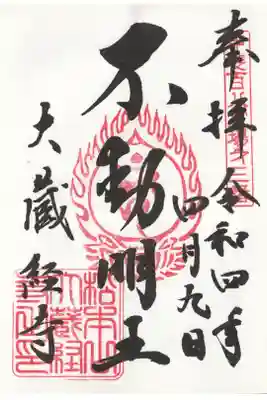 奉拝
令和四年
四月九日
不動明王
大蔵経寺